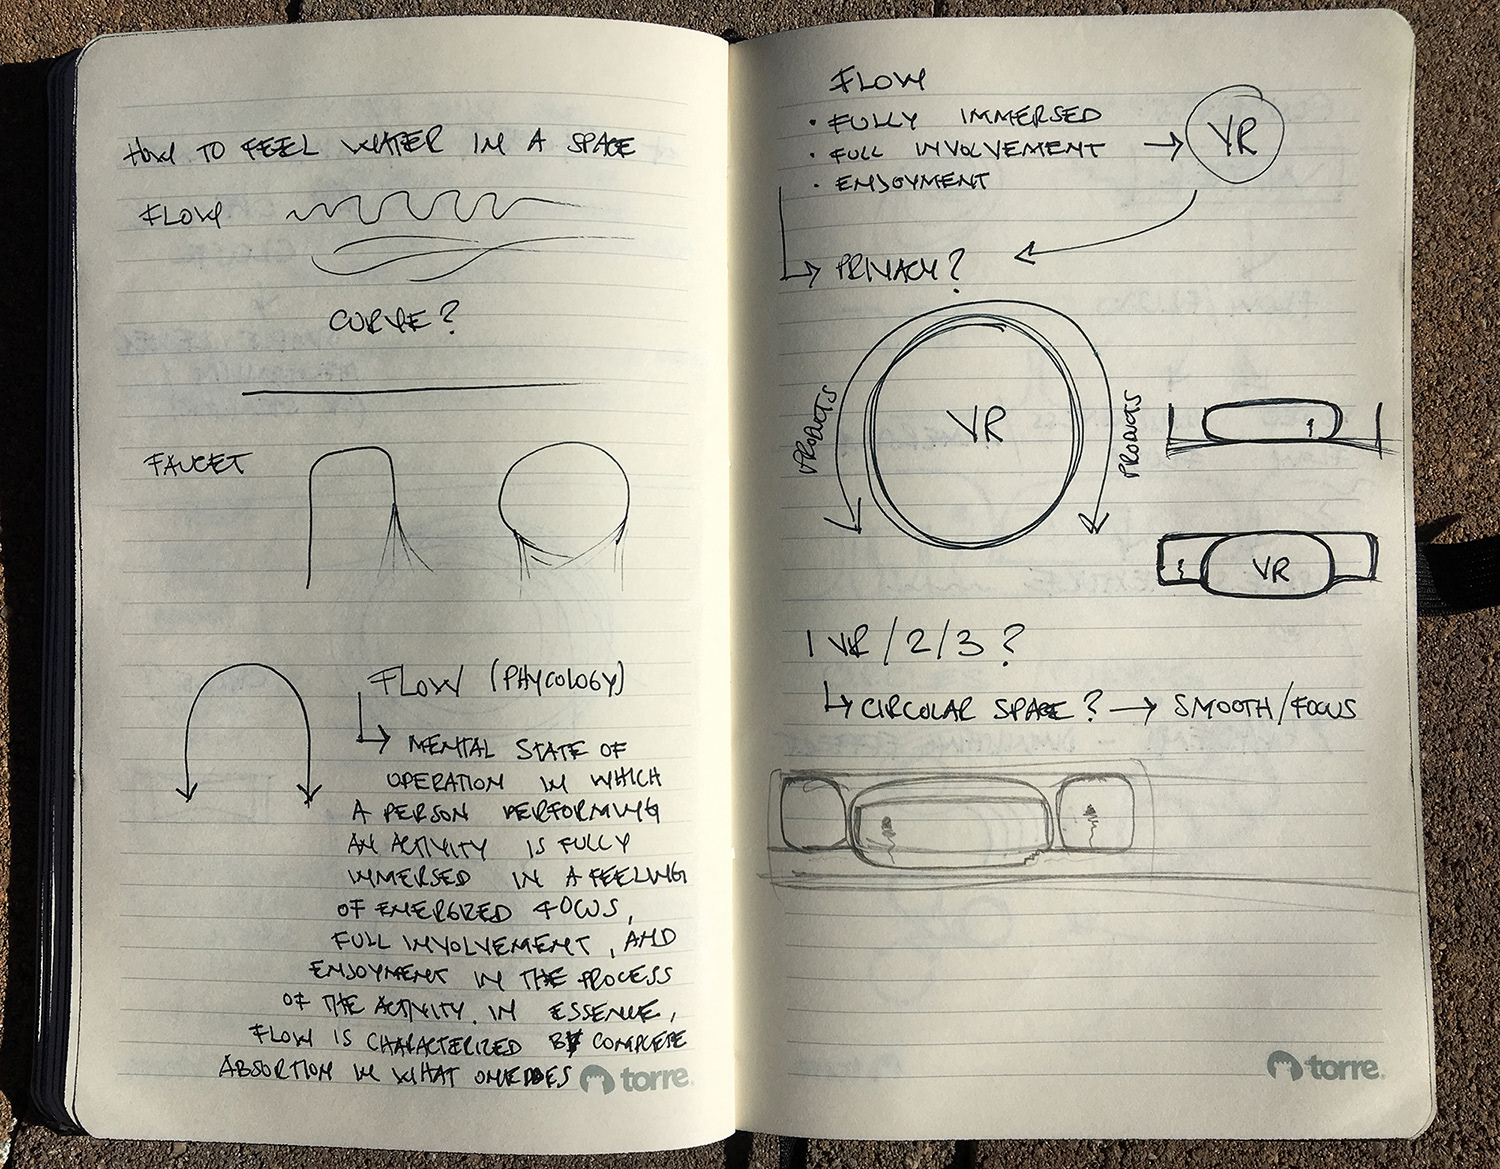 HOW TO FEEL WATER IN A SPACE
FLOW
CURVE?
FAUCET
FLOW (PHYCOLOGY)
MENTAL STATE OF
OPERATION IN WHICH
A PERSON PERFORMING
AN ACTIVITY IS FULLY
IMMERSED IN A FEELING
OF ENERGIZED FOCUS,
FULL INVOLVEMENT, AND
ENJOYMENT IN THE PROCESS
OF THE ACTIVITY. IN ESSENCE,
FLOW IS CHARACTERIZED BY COMPLETE
ABSORTION IN WHAT ONE DOES
torre
FLOW
• FULLY IMMERSED
• FULL INVOLVEMENT → VR
• ENJOYMENT
PRIVACY?
PRODUCTS
VR
PRODUCTS
VR
1 VR / 2 / 3 ?
CIRCULAR SPACE? → SMOOTH/FOCUS
torre